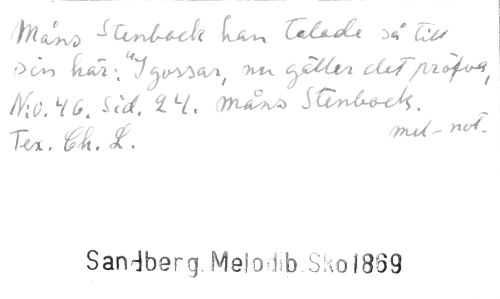 Måns Stenbock han talade så till
sin här: "I gossar, nu gäller det pröfva,
N:o. 46. Sid. 24. Måns Stenbock.
mel-not.
Tex. Ch. L.
Sandberg. Melodib. Sko 1869